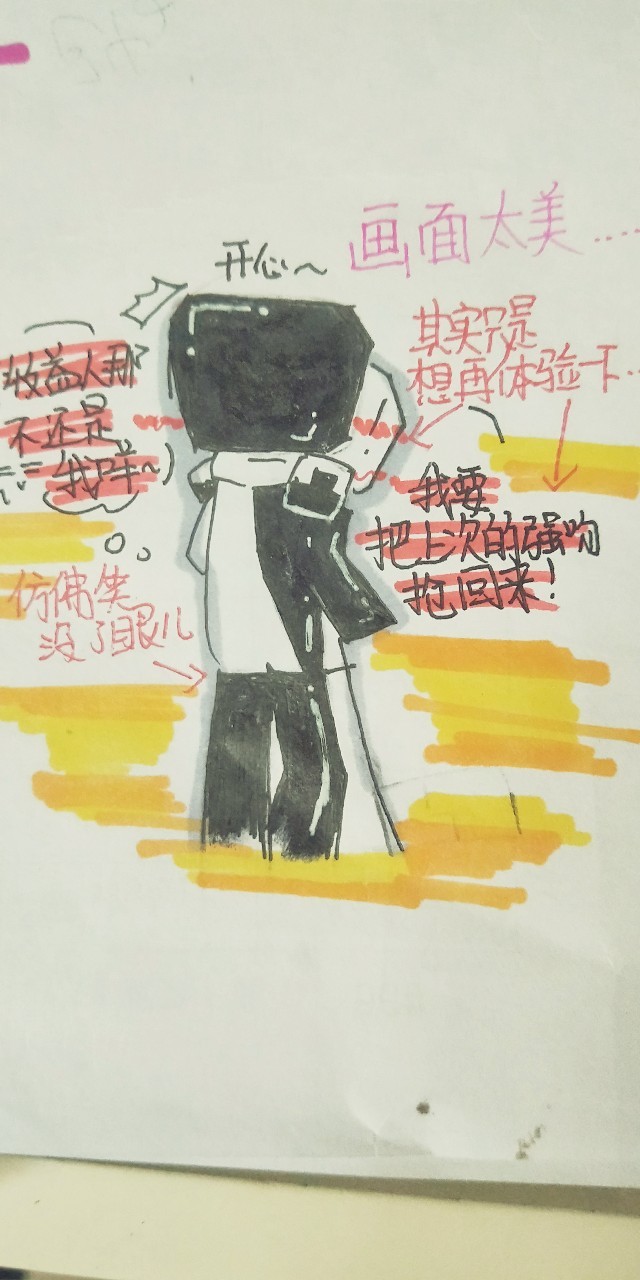 画面太美……
开心～
其实只是
想再体验一下…
收益人那
不还是
我哒～
我要
把上次的强吻
抢回来！
仿佛笑
没了眼儿